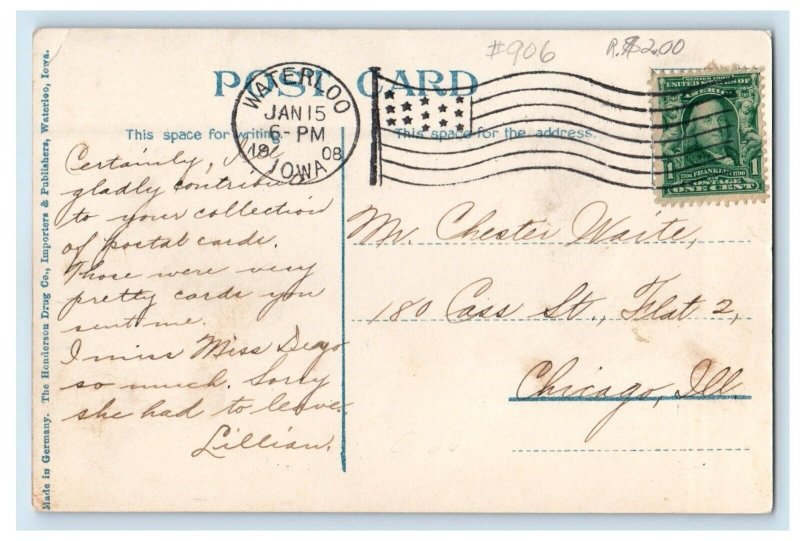 #906
R.$2.00
POST CARD
This space for writing.
This space for the address.
WATERLOO
JAN 15
6-PM
19 08
IOWA
SERIES 1902
UNITED STATES OF
AMERICA
1 1706 FRANKLIN 1790 1
POSTAGE
ONE CENT
Certainly, I'll
gladly contribute
to your collection
of postal cards.
Those were very
pretty cards you
sent me.
I miss Miss
so much. Sorry
she had to leave.
Lillian.
Mr. Chester Waite,
180 Cass St., Flat 2,
Chicago, Ill.
Made in Germany. The Henderson Drug Co., Importers & Publishers, Waterloo, Iowa.